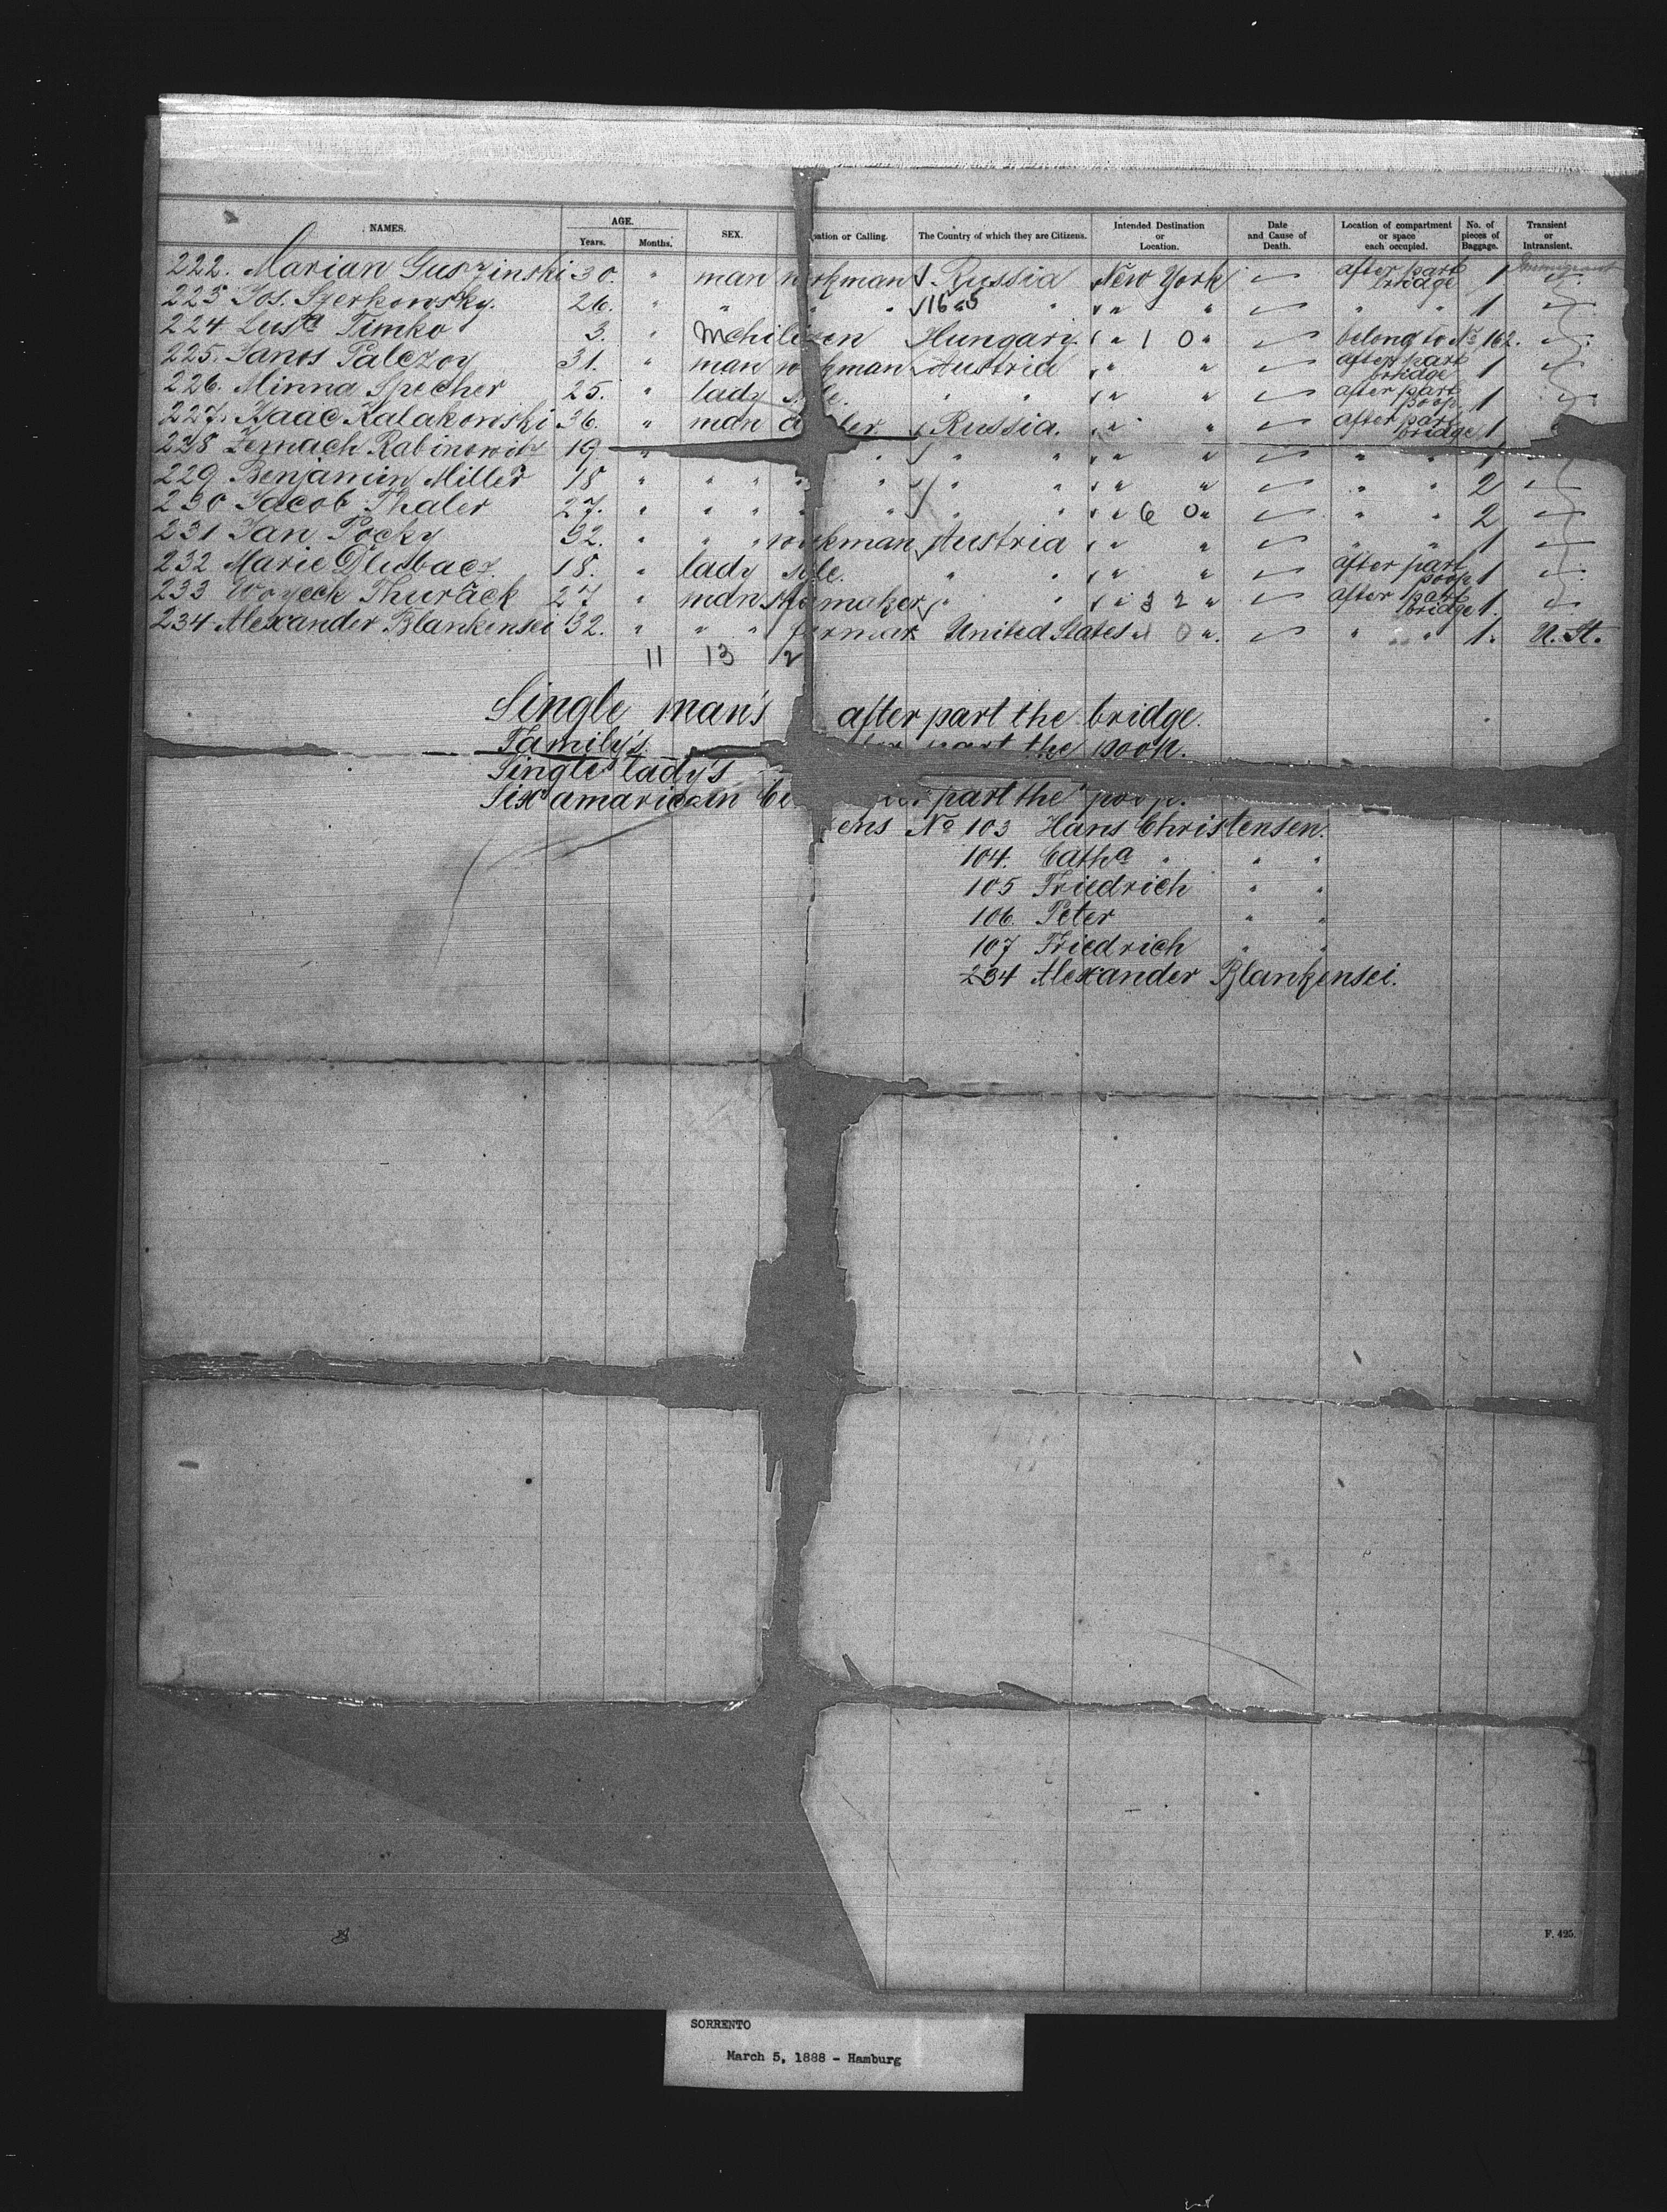 NAMES. AGE. Years. Months. SEX. pation or Calling. The Country of which they are Citizens. Intended Destination or Location. Date and Cause of Death. Location of compartment or space each occupied. No. of pieces of Baggage. Transient or Intransient.
222. Marian Guszinski 30. " man workman Russia New York after part bridge 1 Immigrant
223 Jos. Szerkowsky. 26. " " " " 16-5 " " " " " 1
224 Susa Timko 3. " children Hungary. " 1 0 " belong to No 162.
225. Janos Palczoy 31. " man workman Austria " " after part bridge 1
226. Minna Specher 25. " lady " " " " after part poop 1
227. Isaac Kalakowski 36. " man Russia. " " after part bridge 1
228 Zemach Rabinowitz 19 " " " " " " " " 1
229 Benjamin Miller 18 " " " " " " " " " " " 2
230 Jacob Thaler 27. " " " " " " " " 6 0 " " " 2
231 Jan Pocky 32. " " " workman Austria " " " " 1
232 Marie Dlubacz 18. " lady " " " " after part poop 1
233 Woyeck Thurack 27 " man " " " 3 2 " after part bridge 1.
234 Alexander Blankensei 32. " " " United States " 0 " " " 1. U. St.
11 13 2
Single man's after part the bridge.
Family's part the poop.
Single lady's part the poop.
Six amarican
ens No 103 Hans Christensen.
104. Catha " " "
105 Friedrich " "
106. Peter " "
107 Friedrich " "
234 Alexander Blankensei.
F. 425.
SORRENTO
March 5, 1888 - Hamburg